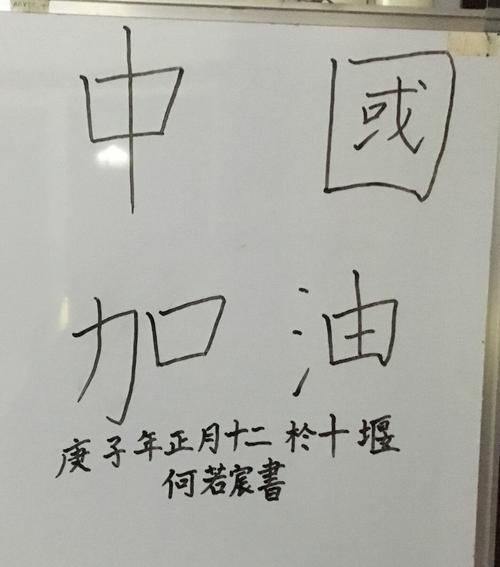 中國
加油
庚子年正月十二於十堰
何若宸書